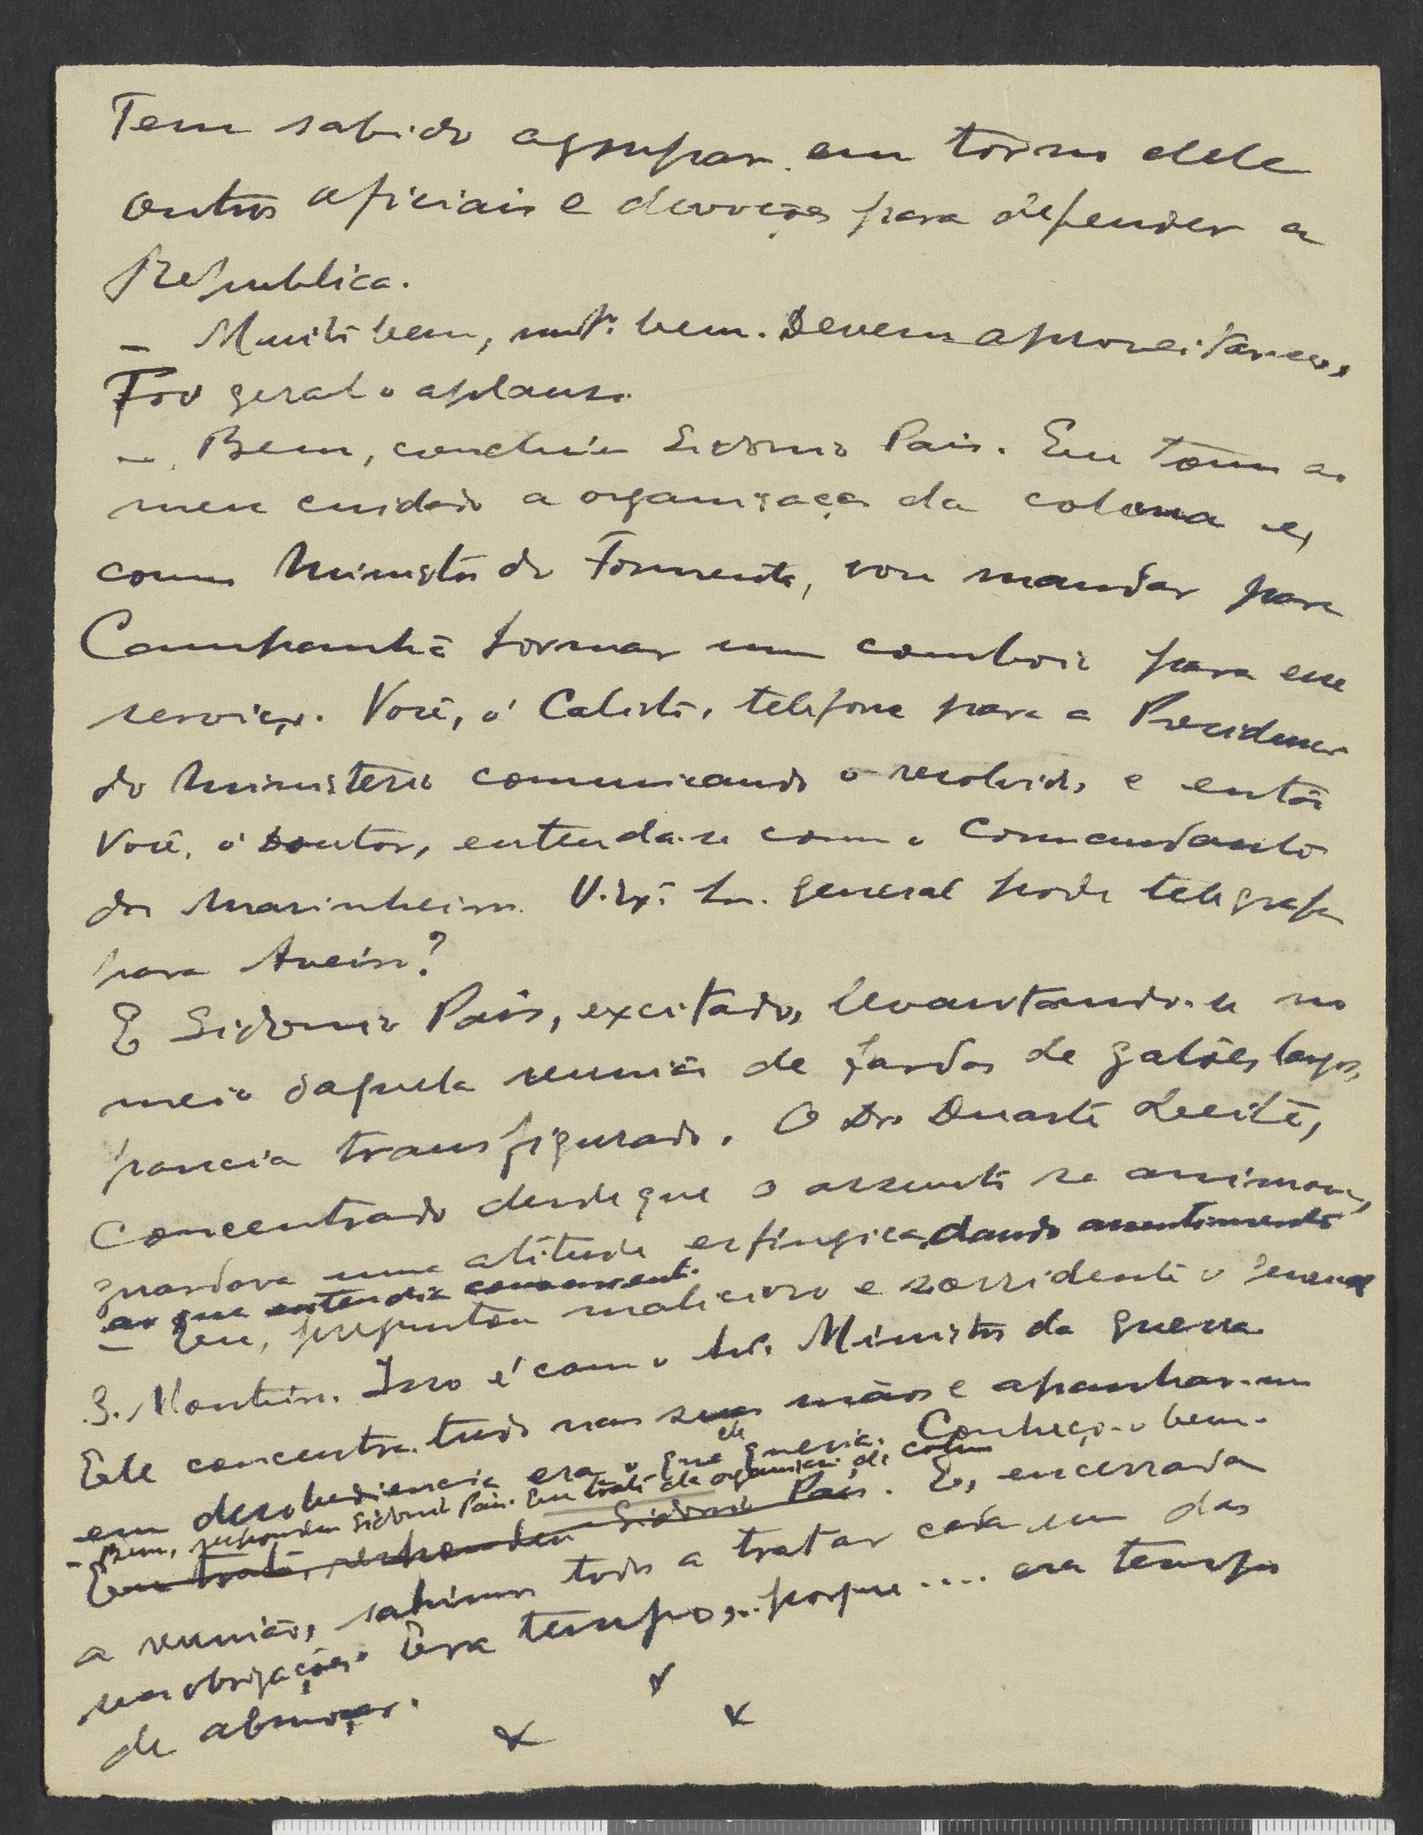 Tem sabido agrupar em tôrno dele
outros oficiais e devoções para defender a
Republica.
— Muito bem, mt.º bem. Devem aproveitar-se.
Foi geral o aplauso.
— Bem, concluiu Sidonio Pais. Eu tomo ao
meu cuidado a organização da coluna e,
como Ministro do Fomento, vou mandar para
Campanhã formar um comboio para esse
serviço. Você, ó Calisto, telefone para a Presidencia
do Ministerio comunicando o resolvido, e então
Você, ó Doutor, entenda-se com o Comandante
dos Marinheiros. V. Ex.ª Sr. general pode telegrafar
para Aveiro?
E Sidonio Pais, excitado, levantando-se no
meio daquela reunião de fardas de galões largos,
parecia transfigurado. O Dr. Duarte Leite,
concentrado desde que o assunto se animou,
guardava uma atitude esfingica, dando assentimento
ao que entendia conveniente.
— Eu, perguntou malicioso e sorridente o general
S. Monteiro. Isso é com o Sr. Ministro da guerra.
Ele concentra tudo nas suas mãos e apanhar-me
em desobediencia era o que ele queria. Conheço-o bem.
— Bem, respondeu Sidonio Pais. Eu trato da organização da coluna
Eu trato, respondeu Sidonio Pais. E, encerrada
a reunião, sahimos todos a tratar cada um das
suas obrigações. Era tempo,... porque.... era tempo
de almoçar.